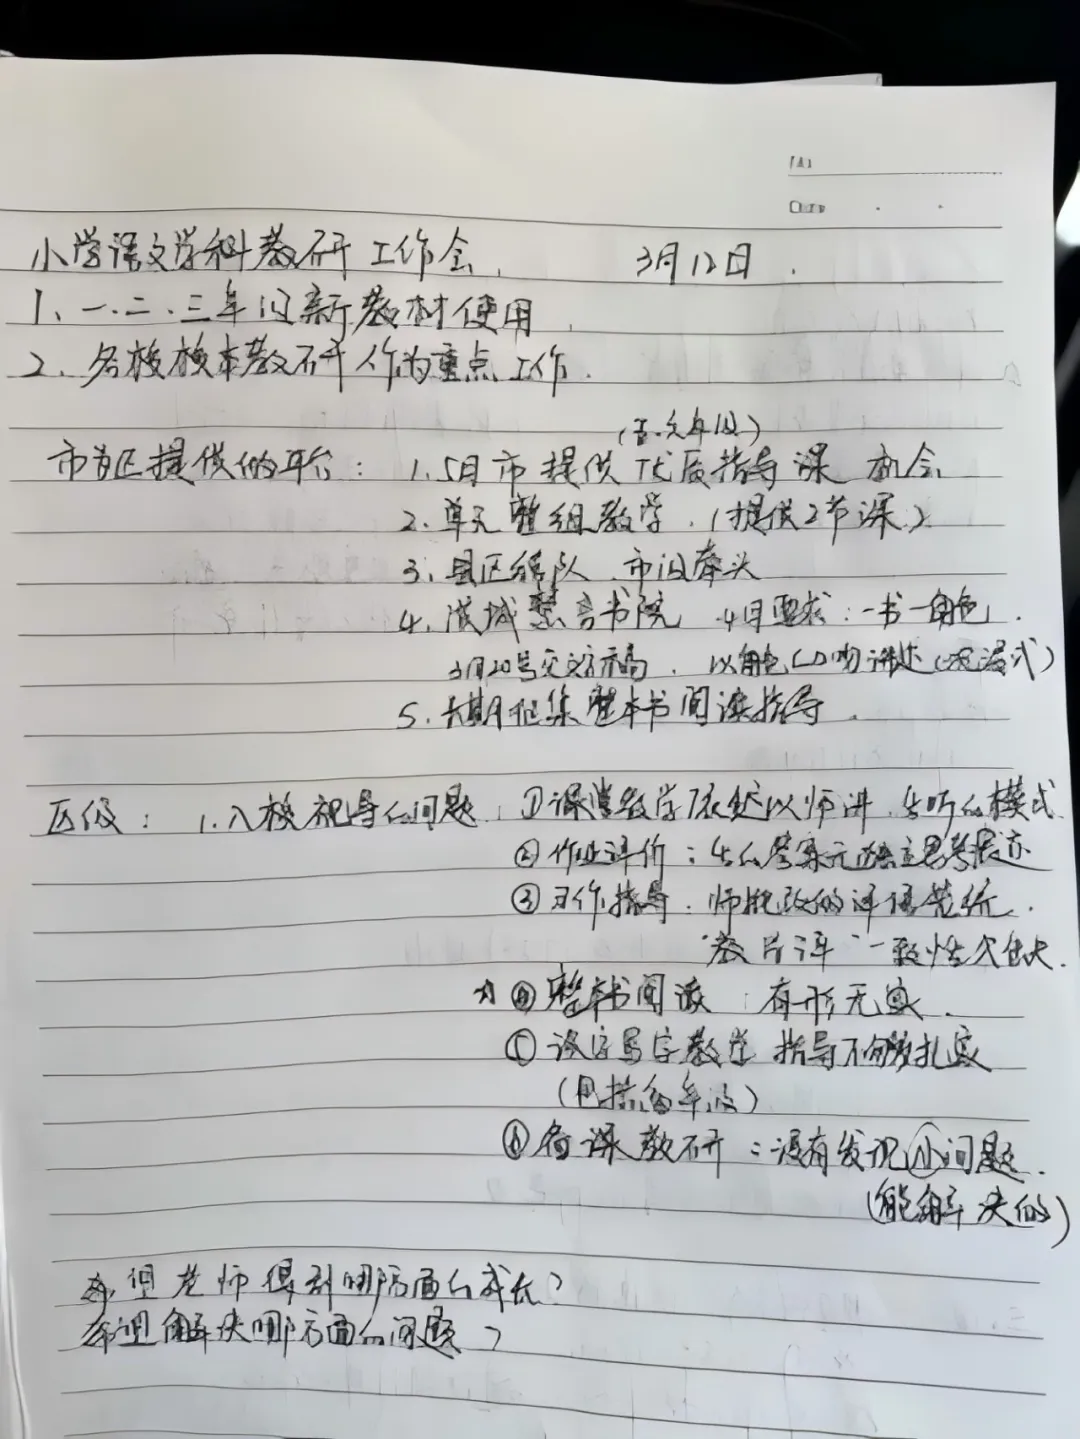 小学语文学科教研工作会 3月12日.
1、一.二.三年级新教材使用
2、各校校本教研作为重点工作.
(五.六年级)
市省区提供的平台: 1.5月市提供优质指导课机会
2.单元整组教学.(提供2节课)
3、县区组队、市级牵头
4、慧言书院 4月要求:一书一角色.
3月20号交文字稿、以角色口吻讲述(沉浸式)
5.长期征集整本书阅读指导.
区级: 1.入校视导的问题: ①课堂教学依然以师讲、生听的模式
②作业评价:生的答案无独立思考痕迹
③习作指导:师批改的评语笼统.
"教 评"一致性欠缺.
④整本书阅读:有形无实.
⑤识字写字教学指导不够扎实
(包括高年级)
⑥备课教研:没有发现小问题.
(能解决的)
希望老师得到哪方面的成长?
希望解决哪方面的问题?